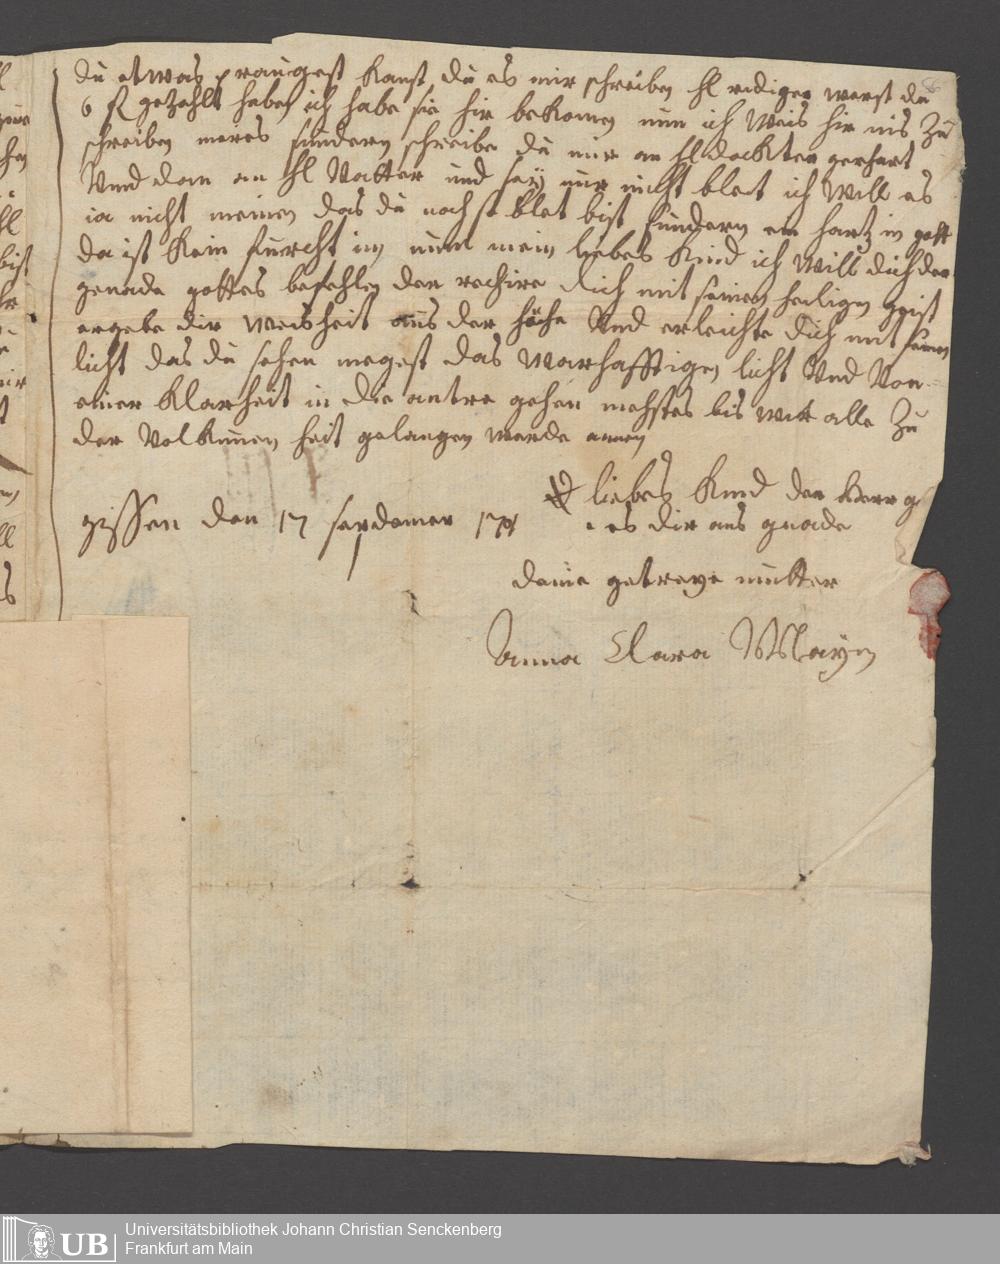 du etwas prauchest kanst du es mir schreiben hl ridiger werst du
6 fl gezahlt haben ich habe sie hir bekomen nun ich Weis hir nis Zu
schreiben meres sundern schreibe du mir an hl dockter gerhart
Vnd dan an hl Vatter und sey nur nicht blet ich Will es
ia nicht meinen das du noch so blet bist sundern ein hartz in gott
da ist kein furcht in nun mein liebes kind ich Will dich der
genade gottes befehlen der rechire dich mit seinen heiligen geist
ergebe dir Weisheit aus der höhe Vnd erleichte dich mit seinem
licht das du sehen megest das Warhafftigen licht Vnd Von
einer klarheit in die antre gehen mehstes bis wir alle Zu
der Volkumen heit gelangen werde amen
liebes kind der herr g
es dir aus gnade
gissen den 17 serdemer
deine getreye mutter
Anna Clara Mayin
Universitätsbibliothek Johann Christian Senckenberg
Frankfurt am Main
UB